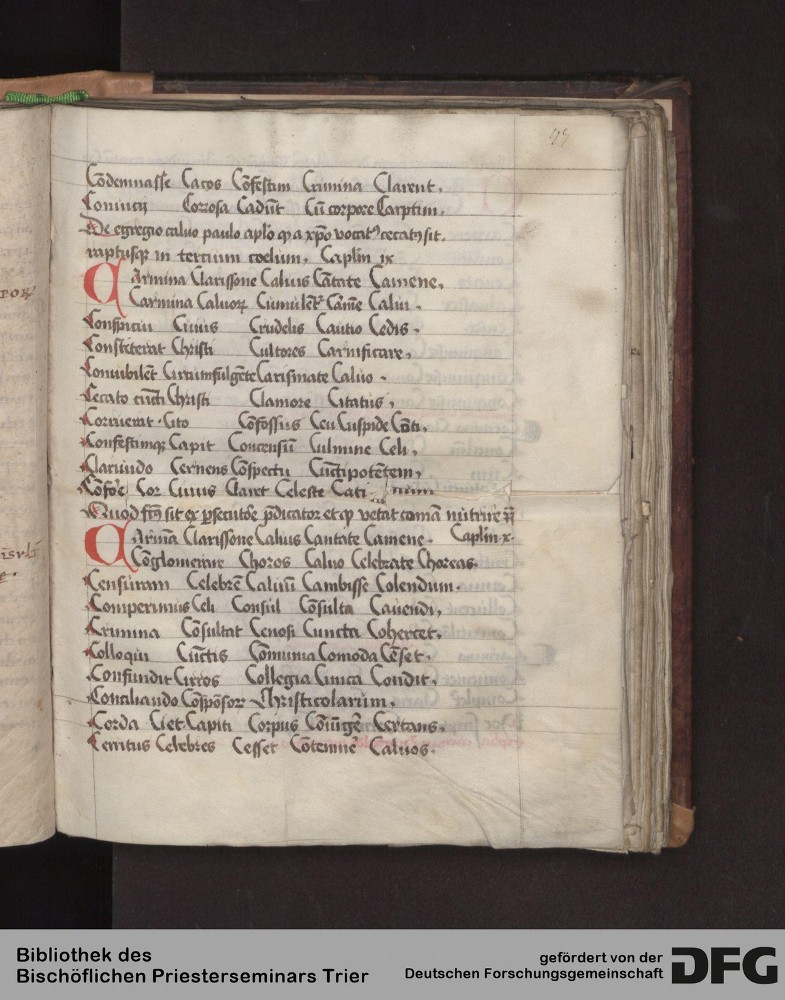 Cōdemnasse Cacos Cōfestim Crimina Clarent.
Corrosa Cadūt Cū corpore Carptim.
De egregio caluo paulo aplo qd a xpo vocat9 cecat9 sit.
raptusq; in tercium coelum. Caplm ix
Carmina Clarissone Caluis Cātate Camene.
Carmina Caluorz Cumulēt Cāme Calui.
Conspiciu Ciuis Crudelis Cautio Cedis.
Constiterat Christi Cultores Carnificare.
Conuibilēt Circumfulgēte Carismate Caluo.
Cecato cūcti Christi Clamore Citatus.
Corruerat Cito Cōfossus Ceu Cuspide Cōti.
Confestimq; Capit Concensū Culmine Celi.
Clariundo Cernens Cōspectu Cūctipotētem.
Cōfore Cor Ciuus Claret Celeste
Quod sit ex psecutōe pdicator et qd vetat comā nutrire
Carmīa Clarissone Caluis Cantate Camene. Caplm x.
Cōglomerare Choros Caluo Celebrate Choreas.
Censuram Celebrē Caluū Cambisse Colendum.
Comperimus Celi Consul Cōsulta Cauendi.
Crimina Cōsultat Cenosi Cuncta Cohercet.
Colloquii Cūctis Cōmunia Comoda Cēset.
Confundit Cirros Collegia Cinica Condit.
Conciliando Cōspōsor Christicolarum.
Corda Ciet Capiti Corpus Cōiūgēs Certans.
Cerritus Celebres Cesset Cōtemnē Caluos.
Bibliothek des
Bischöflichen Priesterseminars Trier
gefördert von der
Deutschen Forschungsgemeinschaft
DFG